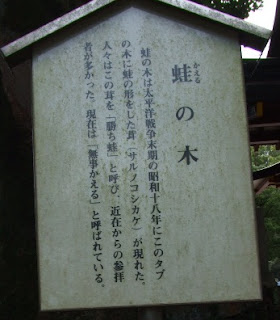 かえる
蛙の木
蛙の木は太平洋戦争末期の昭和十八年にこのタブ
の木に蛙の形をした茸(サルノコシカケ)が現れた。
人々はこの茸を「勝ち蛙」と呼び、近在からの参拝
者が多かった。現在は「無事かえる」と呼ばれている。